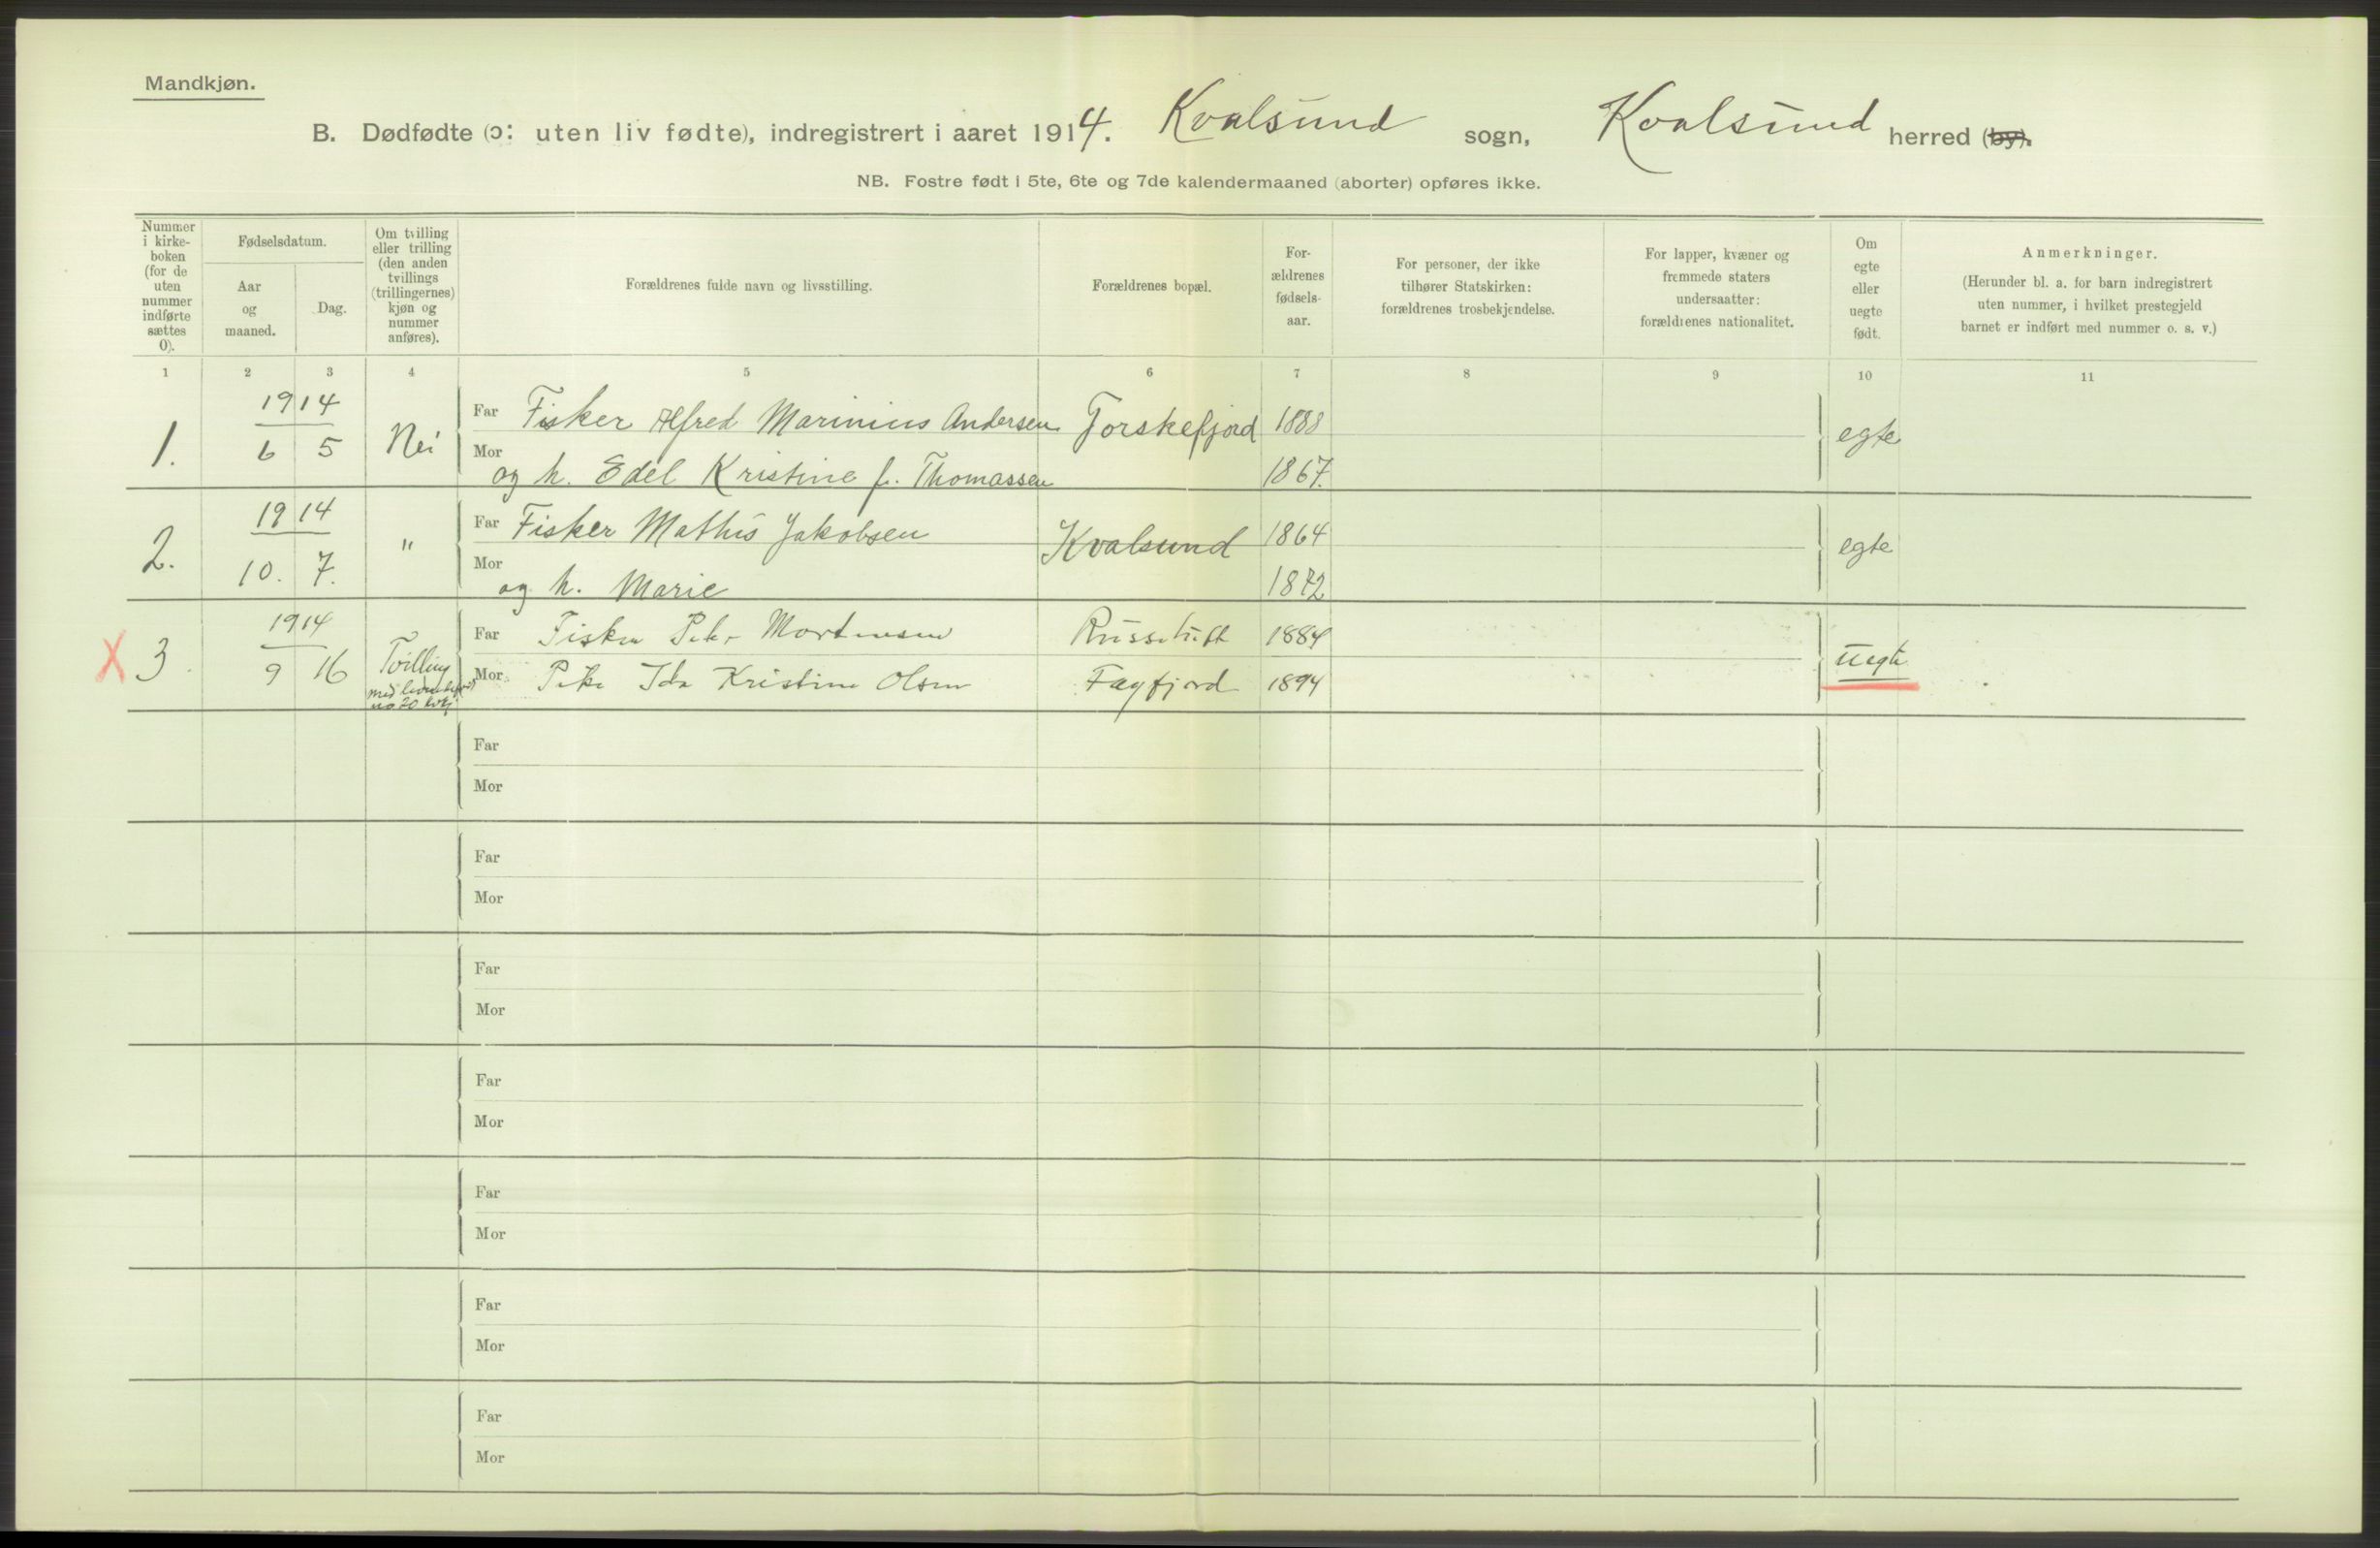 Mandkjøn.
B. Dødfødte (ɔ: uten liv fødte), indregistrert i aaret 1914. Kvalsund sogn, Kvalsund herred (by).
NB. Fostre født i 5te, 6te og 7de kalendermaaned (aborter) opføres ikke.
Nummer
i kirke-
boken
(for de
uten
nummer
indførte
sættes
0).
Fødselsdatum.
Aar
og
maaned.
Dag.
Om tvilling
eller trilling
(den anden
tvillings
(trillingernes)
kjøn og
nummer
anføres).
Forældrenes fulde navn og livsstilling.
Forældrenes bopæl.
For-
ældrenes
fødsels-
aar.
For personer, der ikke
tilhører Statskirken:
forældrenes trosbekjendelse.
For lapper, kvæner og
fremmede staters
undersaatter:
forældrenes nationalitet.
Om
egte
eller
uegte
født.
Anmerkninger.
(Herunder bl. a. for barn indregistrert
uten nummer, i hvilket prestegjeld
barnet er indført med nummer o. s. v.)
1 2 3 4 5 6 7 8 9 10 11
1914
1. 6 5 Nei
Far Fisker Alfred Marinius Andersen Torskefjord 1888 egte
Mor og h. Edel Kristine f. Thomassen 1867.
1914
2. 10. 7. "
Far Fisker Mathis Jakobsen Kvalsund 1864 egte
Mor og h. Marie 1872
1914
X 3. 9 16 Tvilling
med
no 20
Far Fisker Peder Mortensen 1884 Uegte
Mor Pike Ida Kristine Olsen Fagfjord 1894
Far
Mor
Far
Mor
Far
Mor
Far
Mor
Far
Mor
Far
Mor
Far
Mor